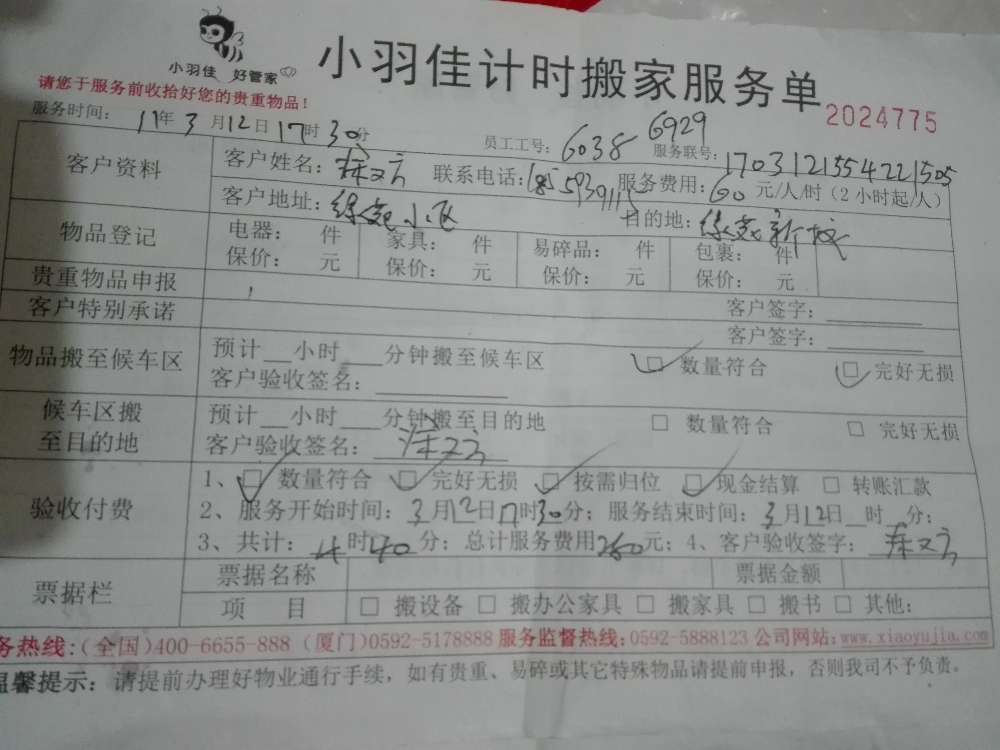 小羽佳 好管家
小羽佳计时搬家服务单
请您于服务前收拾好您的贵重物品！
2024775
服务时间： 17年3月12日17时30分 员工工号：6038 6929 服务联号：1703121554221505
客户资料 客户姓名： 联系电话：18559391115 服务费用：60元/人/时（2小时起/人）
客户地址：绿苑小 目的地：绿苑新城
物品登记 电器： 件 家具： 件 易碎品： 件 包裹： 件
保价： 元 保价： 元 保价： 元 保价： 元
贵重物品申报 客户签字：
客户特别承诺 客户签字：
物品搬至候车区 预计__小时__分钟搬至候车区 ☑ 数量符合 ☑ 完好无损
客户验收签名：
候车区搬至目的地 预计__小时__分钟搬至目的地 □ 数量符合 □ 完好无损
客户验收签名：
验收付费 1、☑ 数量符合 ☑ 完好无损 ☑ 按需归位 ☑ 现金结算 □ 转账汇款
2、服务开始时间：3月12日17时30分；服务结束时间：3月12日__时__分；
3、共计：4时40分；总计服务费用280元；4、客户验收签字：
票据栏 票据名称 票据金额
项 目 □ 搬设备 □ 搬办公家具 □ 搬家具 □ 搬书 □ 其他：
务热线：(全国)400-6655-888 (厦门)0592-5178888 服务监督热线：0592-5888123 公司网站：www.xiaoyujia.com
温馨提示：请提前办理好物业通行手续，如有贵重、易碎或其它特殊物品请提前申报，否则我司不予负责。